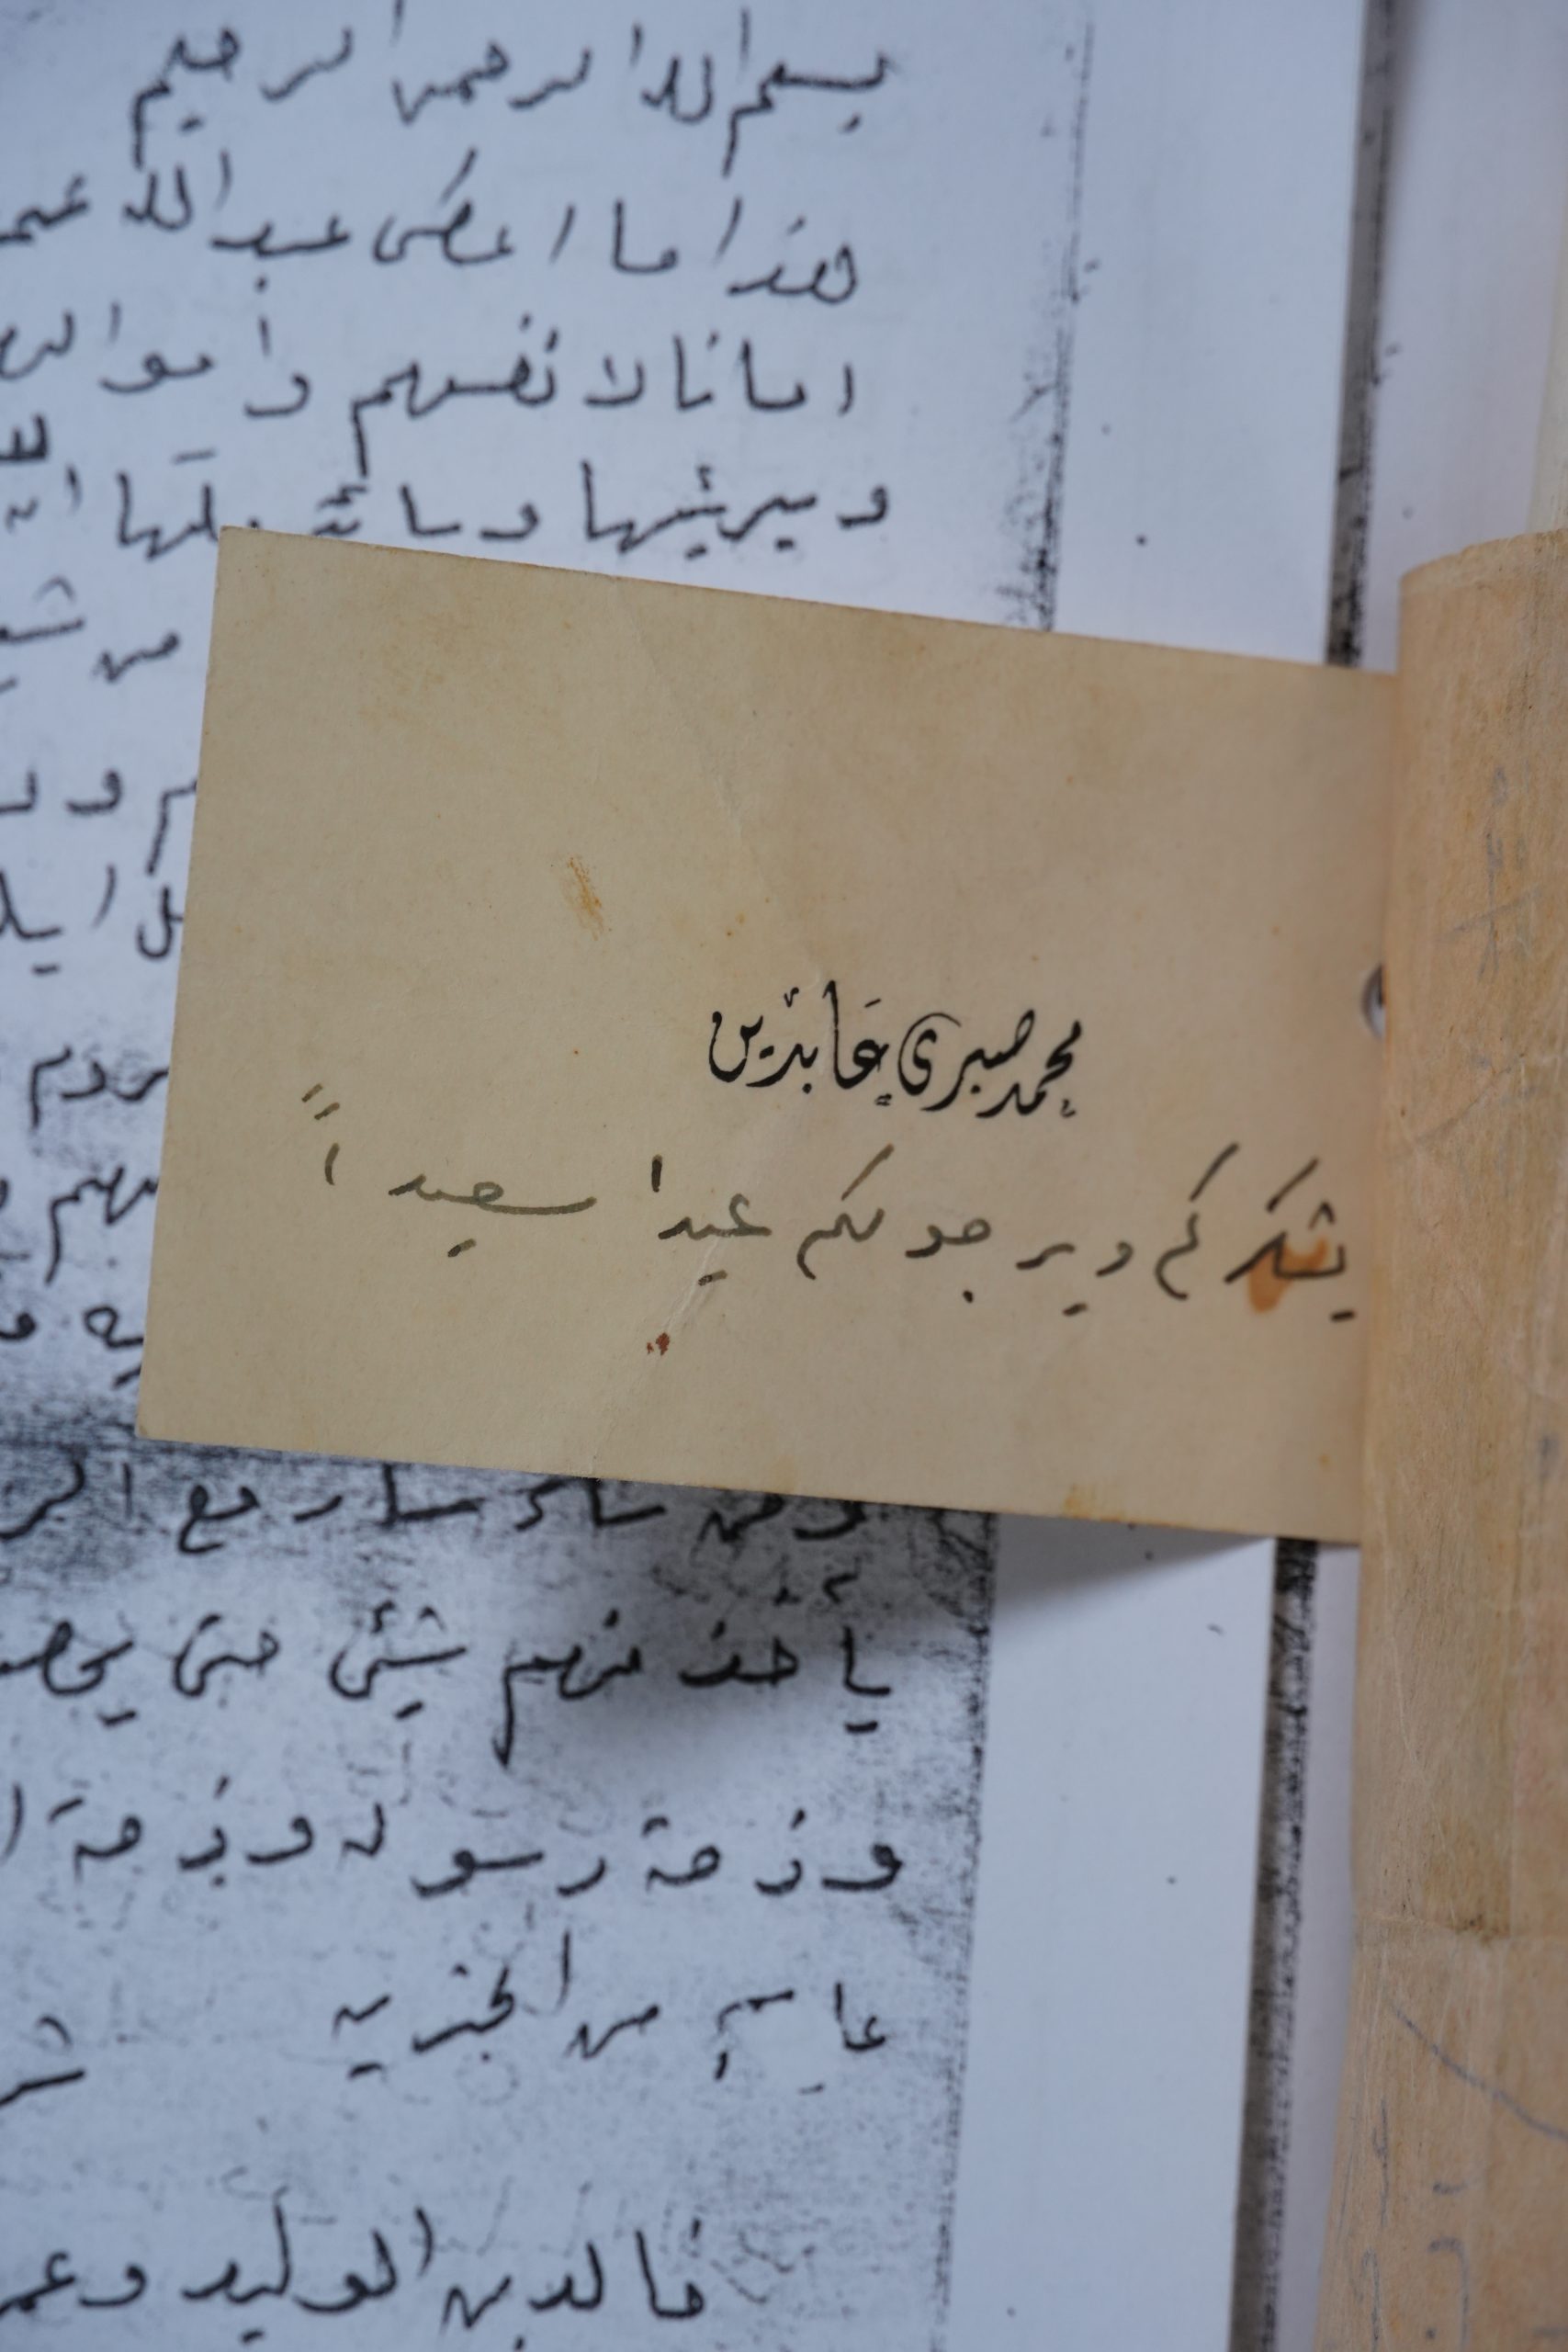 بسم الله الرحمن الرحيم
هذا ما اعطى عبد الله عمر
امانا لا نفسهم وأموالهم
وبريئها وسائر ملتها
من
ايل
محمد صبري عابدين
يشكركم ويرجو لكم عيدا سعيداً
ومن شاء سار مع الر
يأخذ منهم شيئ حتى يحصد
وذمة رسوله وذمة ا
عليهم من الجزيه
خالد بن الوليد وعمر